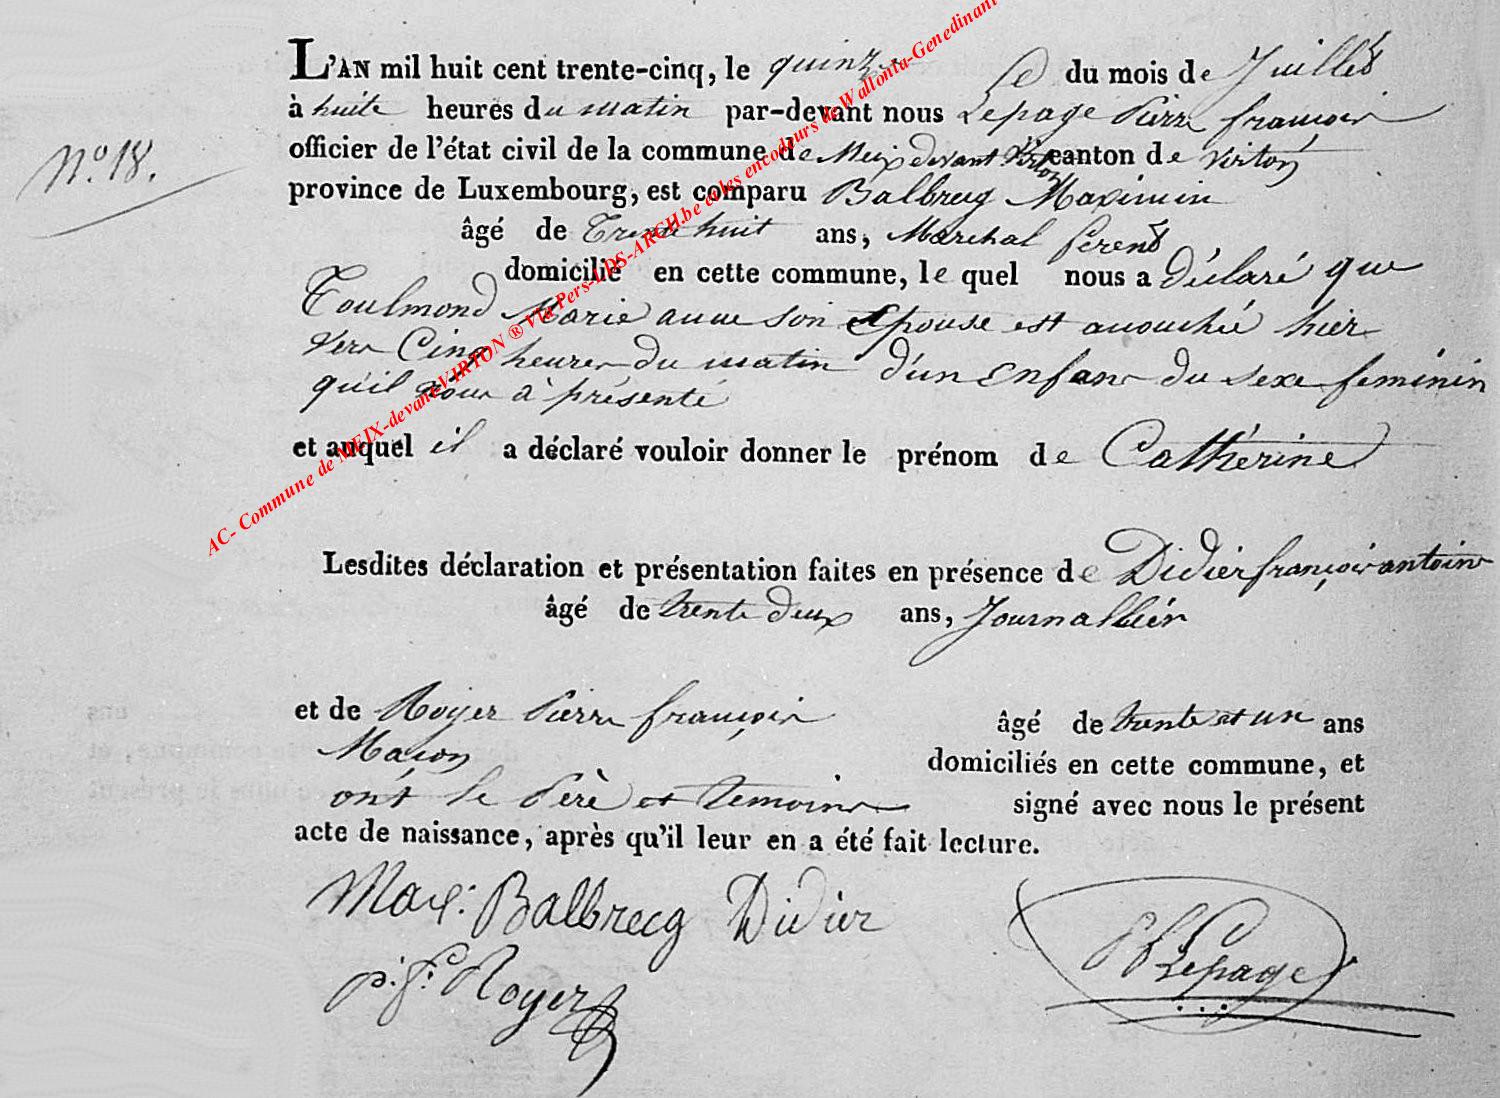 L'AN mil huit cent trente-cinq, le quinze du mois de Juillet
à huite heures du matin par-devant nous Lepage Pierre françois
officier de l'état civil de la commune de Meix devant Virton canton de virton
N.º 18.
province de Luxembourg, est comparu Balbrecq Maximin
âgé de Trente huit ans, Marchal ferent
domicilié en cette commune, le quel nous a déclaré que
Toulmond Marie anne son Epouse est accouchée hier
vers Cinq heures du matin d'un Enfans du sexe féminin
qu'il nous à présenté
et auquel il a déclaré vouloir donner le prénom de Cathérine
AC- Commune de MEIX-devant-VIRTON ® Via Pers-LDS-ARCH.be et les encodeurs de Wallonia-Genedinant
Lesdites déclaration et présentation faites en présence de Didier françois antoine
âgé de trente deux ans, Journallier
et de Royer Pierre françois âgé de trente et un ans
Maçon domiciliés en cette commune, et
ont le Père et temoins signé avec nous le présent
acte de naissance, après qu'il leur en a été fait lecture.
Max: Balbrecq Didier
p. f. Royer
Lepage